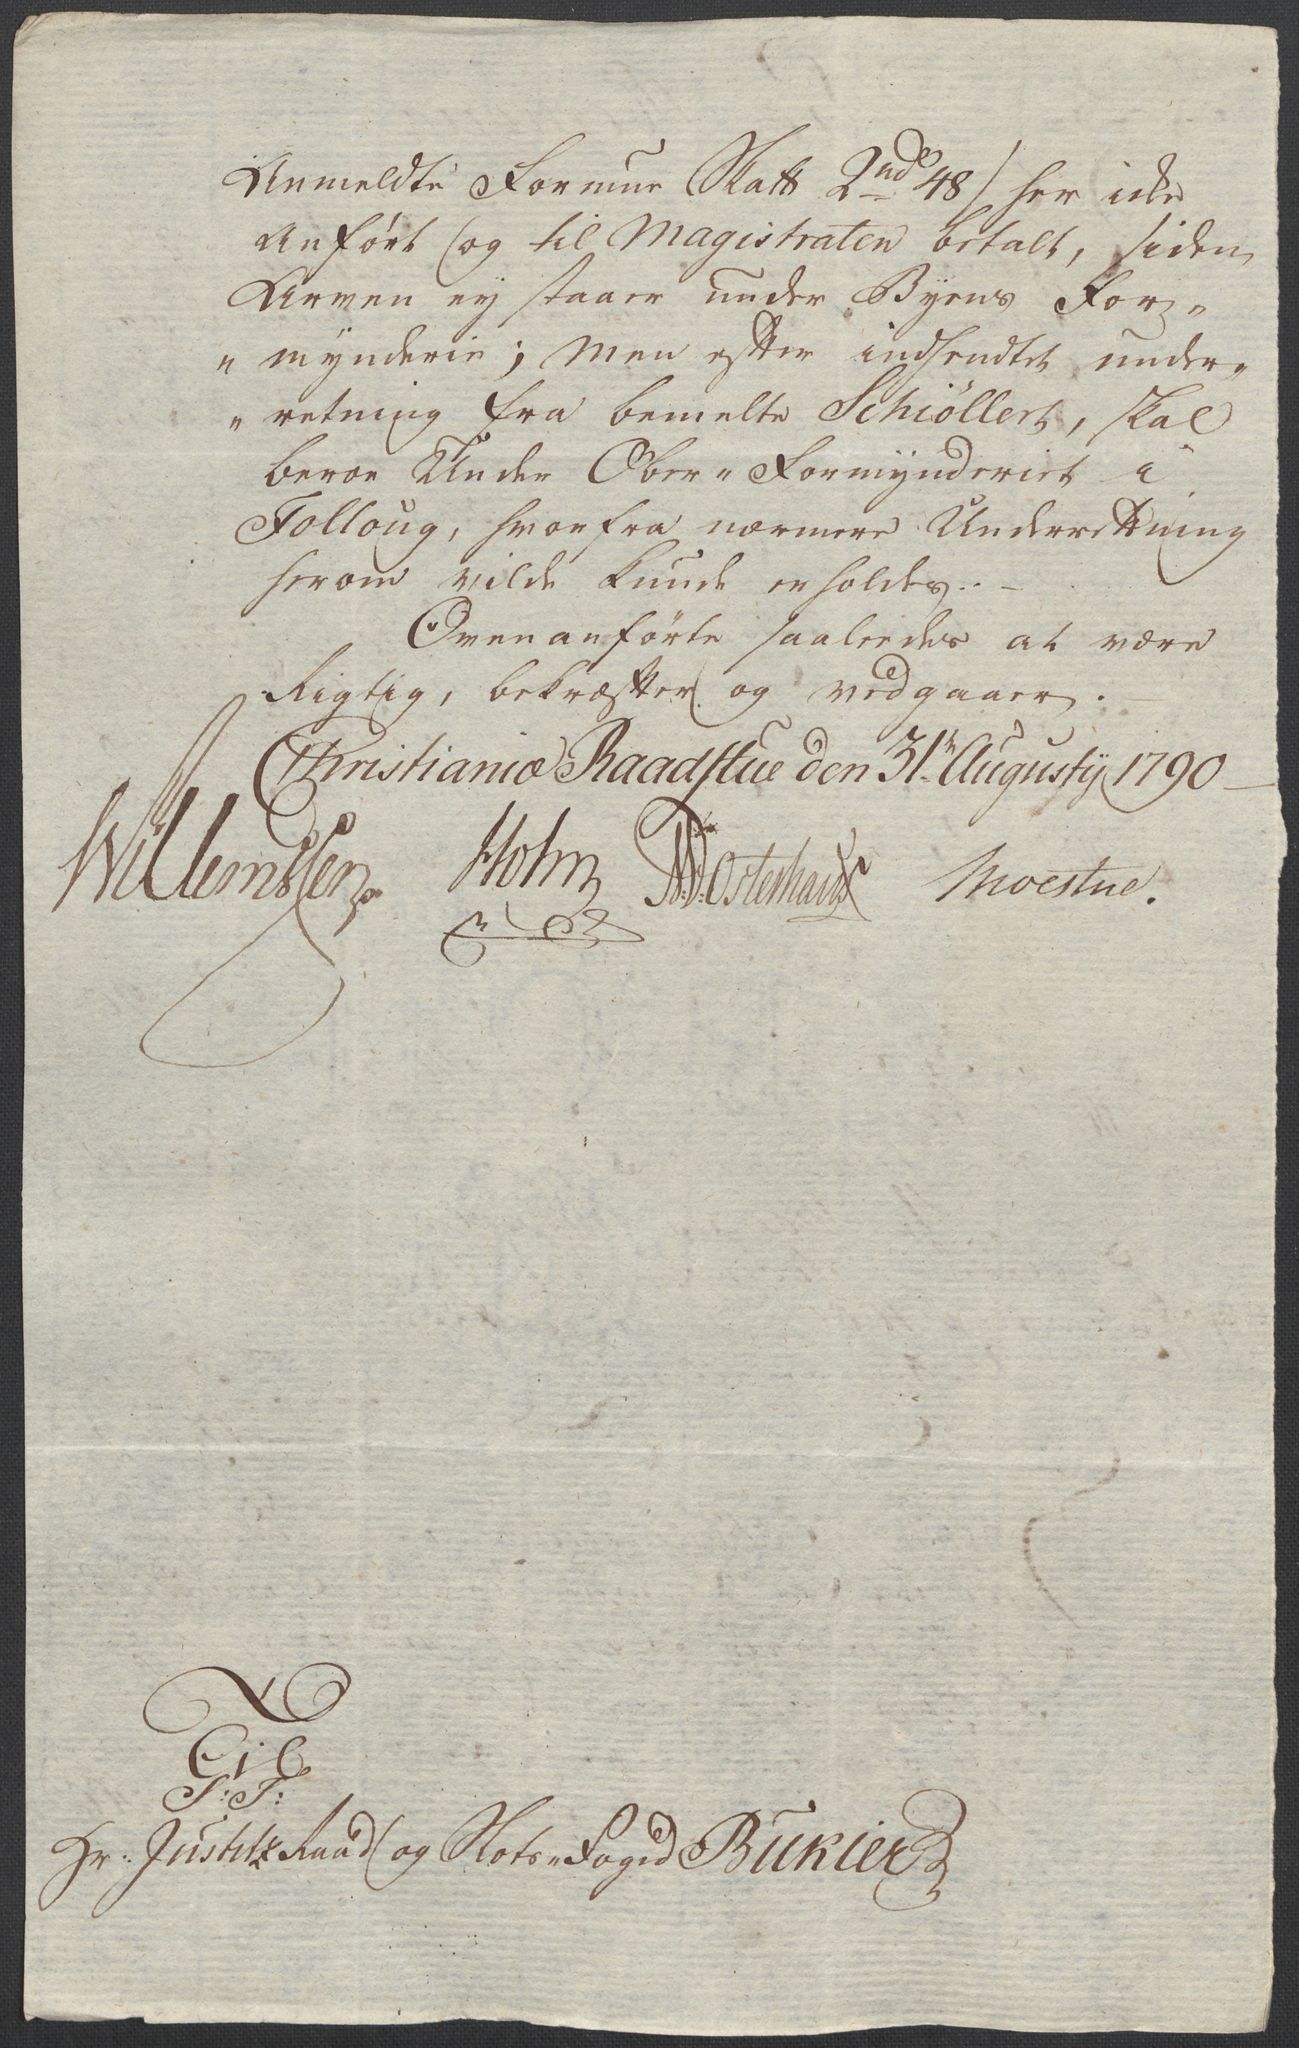 Anmeldte Formue Skatt 2 rd 48 s her icke
Anført og til Magistraten betalt, siden
Arven ej staaer under Byens For-
"mynderie; Men efter indsendte under-
"retning fra bemelte Schiöllert, skal
beroe Under Ober-Formynderiet i
Folloug, hvorfra nærmere Underretning
herom vilde kunde erholdes. -
Ovenanførte saaledes at være
Rigtig, bekræfter og vedgaaer.
Christiania Raadstue den 31te Augustij 1790
Willemssen Holm Osterhaus Moestue.
Til
S: T:
Hr. Justitz Raad og Slots-Foged Bukier